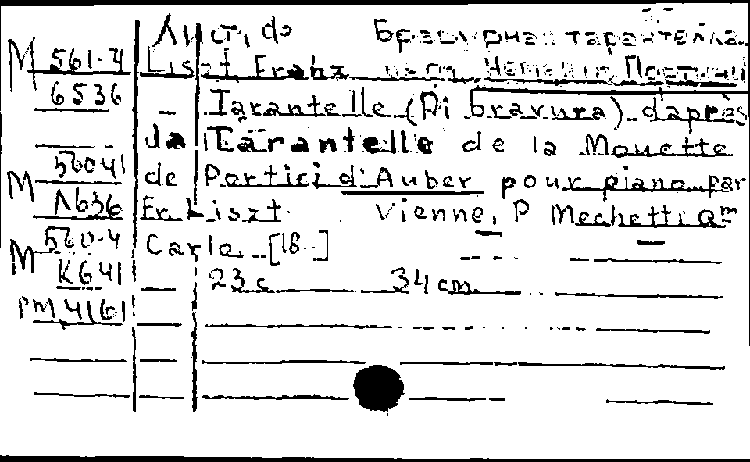 Лист, Бравурная тарантелла
M 561-4 Liszt Franz Немая из Портичи
6536 Tarantelle (Di bravura) d'après
la Tarantelle de la Mouette
M 5604 de Portici d'Auber pour piano par
N636 Fr. Liszt Vienne, P Mechetti qm
M 560-4 Carlo [18..]
K641 23 c 34 cm
PM 4161